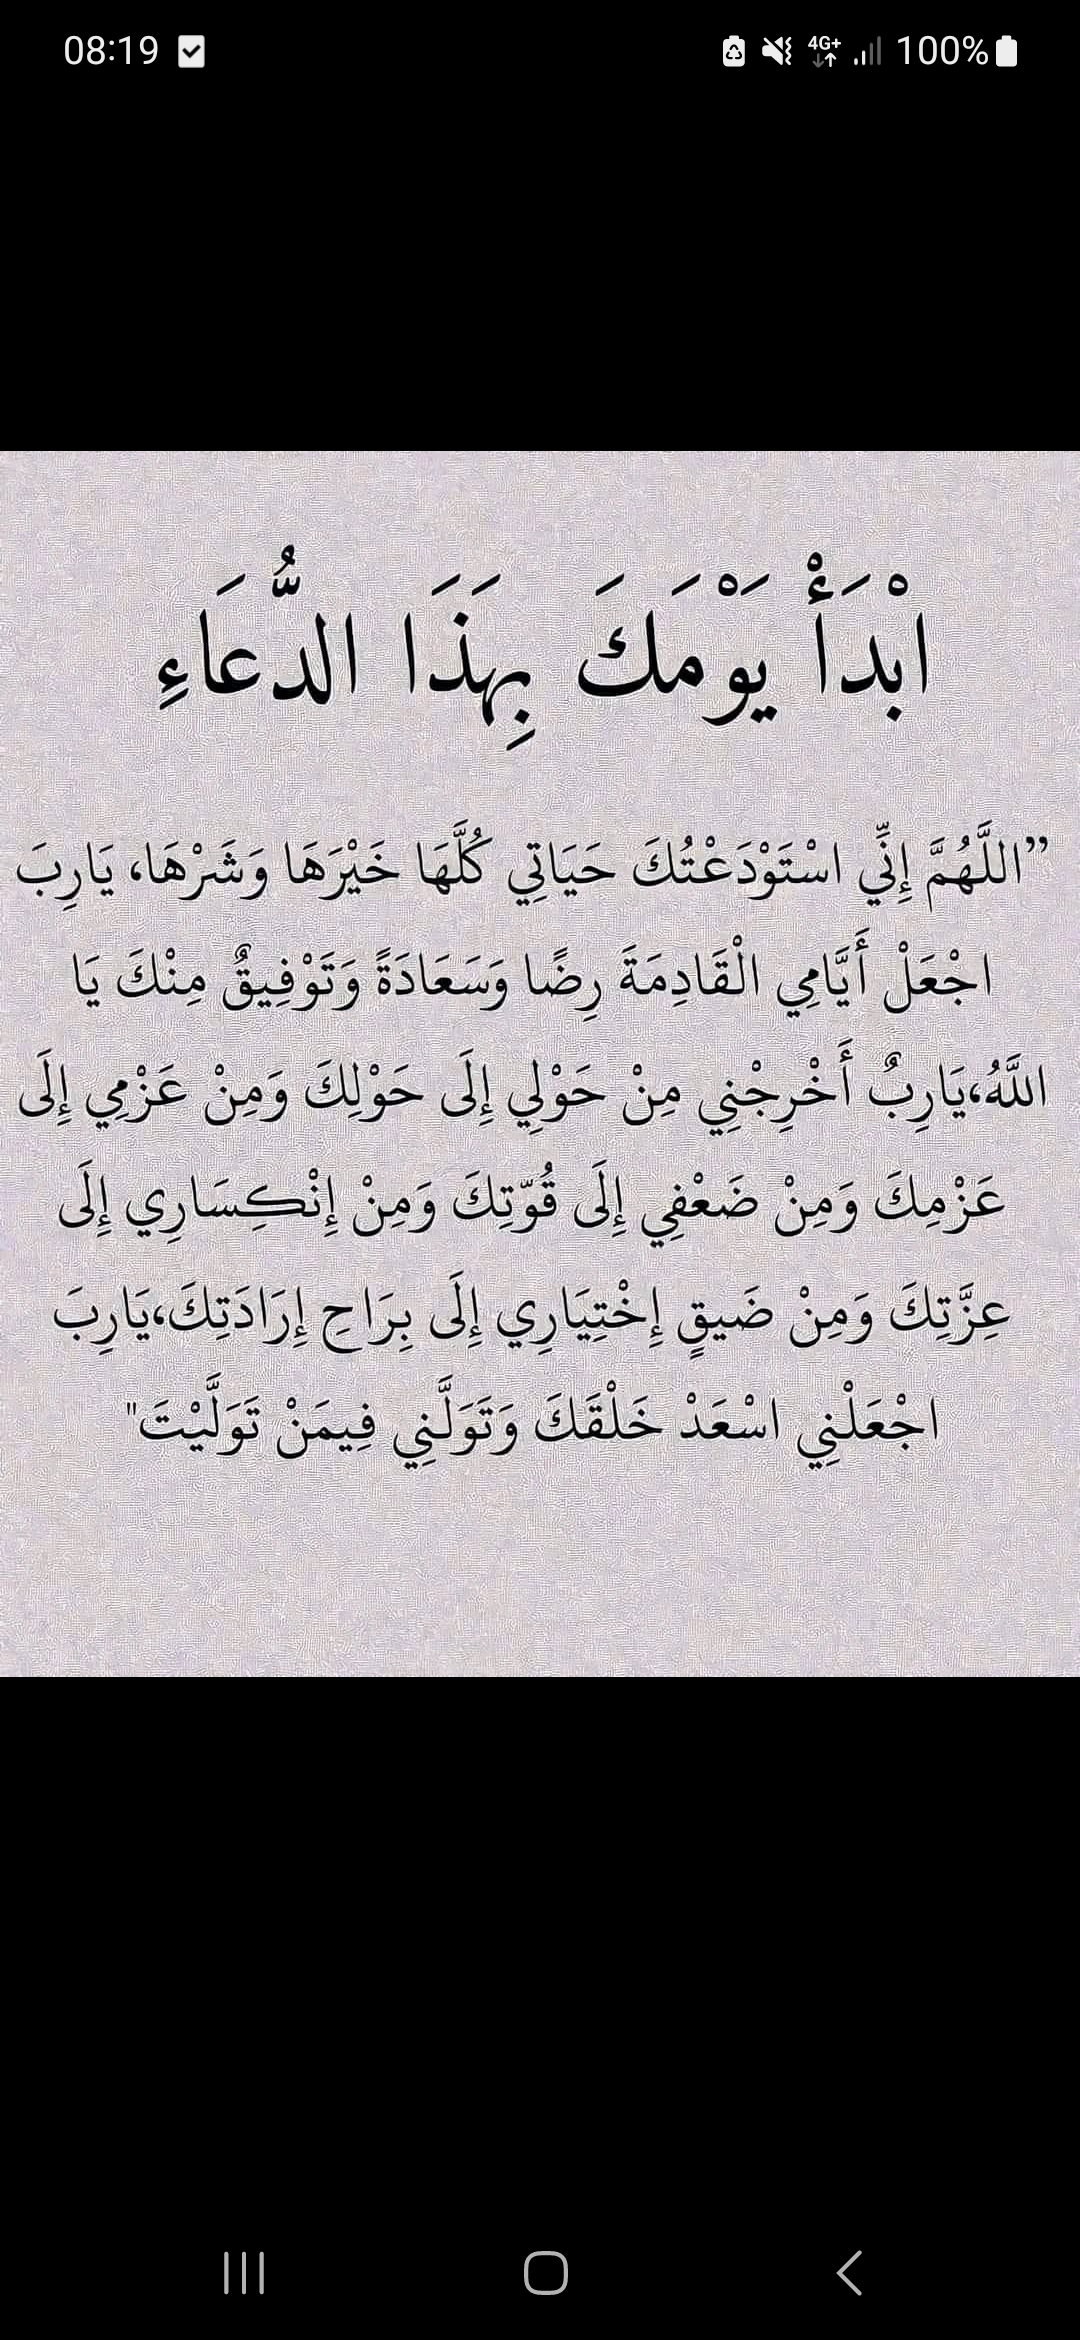 08:19
4G+
100%
ابْدَأْ يَوْمَكَ بِهَذَا الدُّعَاءِ
”اللَّهُمَّ إِنِّي اسْتَوْدَعْتُكَ حَيَاتِي كُلَّهَا خَيْرَهَا وَشَرْهَا، يَارِبَ
اجْعَلْ أَيَّامِي الْقَادِمَةَ رِضًا وَسَعَادَةً وَتَوْفِيقٌ مِنْكَ يَا
اللَّهُ،يَارِبٌ أَخْرِجْنِي مِنْ حَوْلِي إِلَى حَوْلِكَ وَمِنْ عَزْمِي إِلَى
عَزْمِكَ وَمِنْ ضَعْفِي إِلَى قُوّتِكَ وَمِنْ إِنْكِسَارِي إِلَى
عِزَّتِكَ وَمِنْ ضَيقٍ إِخْتِيَارِي إِلَى بِرَاحِ إِرَادَتِكَ،يَارِبَ
اجْعَلْنِي اسْعَدْ خَلْقَكَ وَتَوَلَّنِي فِيمَنْ تَوَلَّيْتَ"